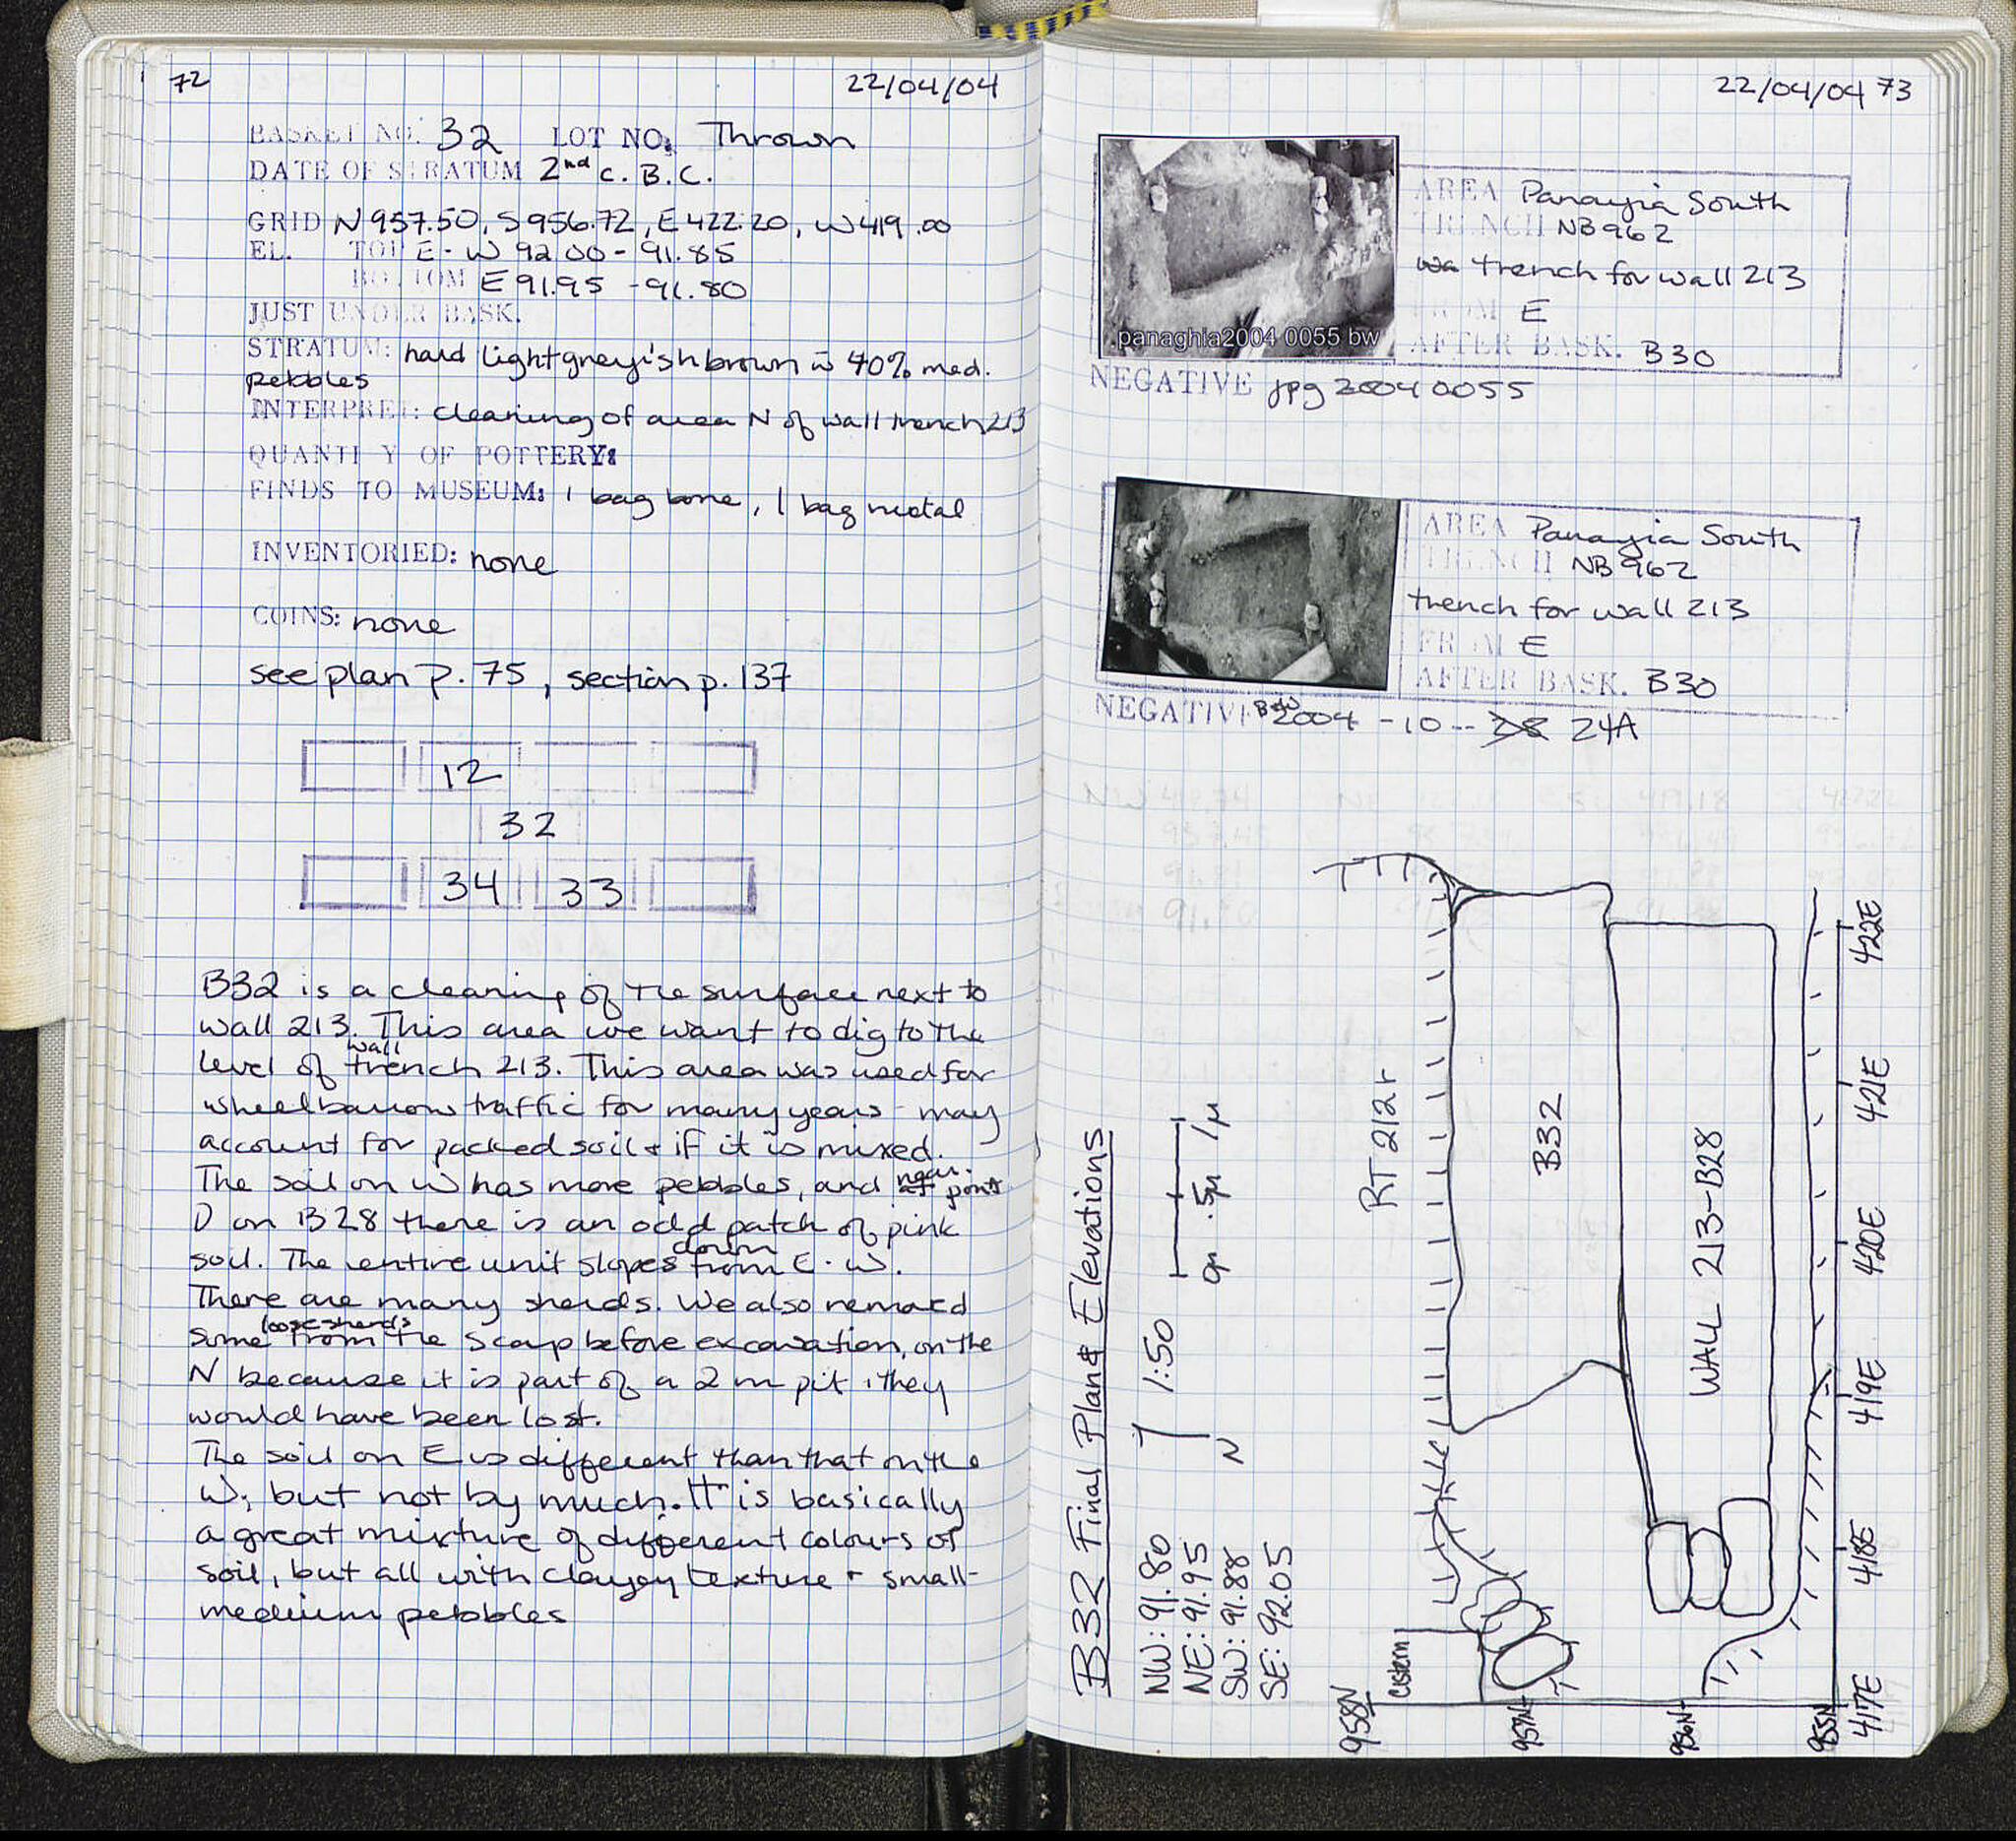 72
22/04/04
BASKET NO. 32 LOT NO: Thrown
DATE OF STRATUM 2nd c. B.C.
GRID N957.50, S956.72, E422.20, W419.00
EL. TOP E-W 92.00-91.85
BOTTOM E 91.95 -91.80
JUST UNDER BASK.
STRATUM: hard light greyish brown w 40% med.
pebbles
INTERPRET: cleaning of area N of wall trench 213
QUANTITY OF POTTERY:
FINDS TO MUSEUM: 1 bag bone, 1 bag metal
INVENTORIED: none
COINS: none
see plan p. 75, section p. 137
12
32
34 33
B32 is a cleaning of the surface next to
wall 213. This area we want to dig to the
level of wall trench 213. This area was used for
wheelbarrow traffic for many years - may
account for packed soil + if it is mixed.
The soil on W has more pebbles, and near point
D on B28 there is an odd patch of pink
soil. The entire unit slopes down from E-W.
There are many sherds. We also removed
some loose sherds from the scarp before excavation, on the
N because it is part of a 2 m pit + they
would have been lost.
The soil on E is different than that on the
W, but not by much. It is basically
a great mixture of different colours of
soil, but all with clayey texture + small-
medium pebbles
22/04/04 73
panaghia2004 0055 bw
AREA Panayia South
TRENCH NB962
wa trench for wall 213
FROM E
AFTER BASK. B30
NEGATIVE jpg 2004 0055
AREA Panayia South
TRENCH NB962
trench for wall 213
FROM E
AFTER BASK. B30
NEGATIVE B+W 2004 -10-- 28 24A
B32 Final Plan & Elevations
NW: 91.80
NE: 91.95
SW: 91.88
SE: 92.05
N
1:50
0m .5m 1m
RT 212r
B32
WALL 213-B28
Cistern
958N
957N
956N
955N
417E
418E
419E
420E
421E
422E